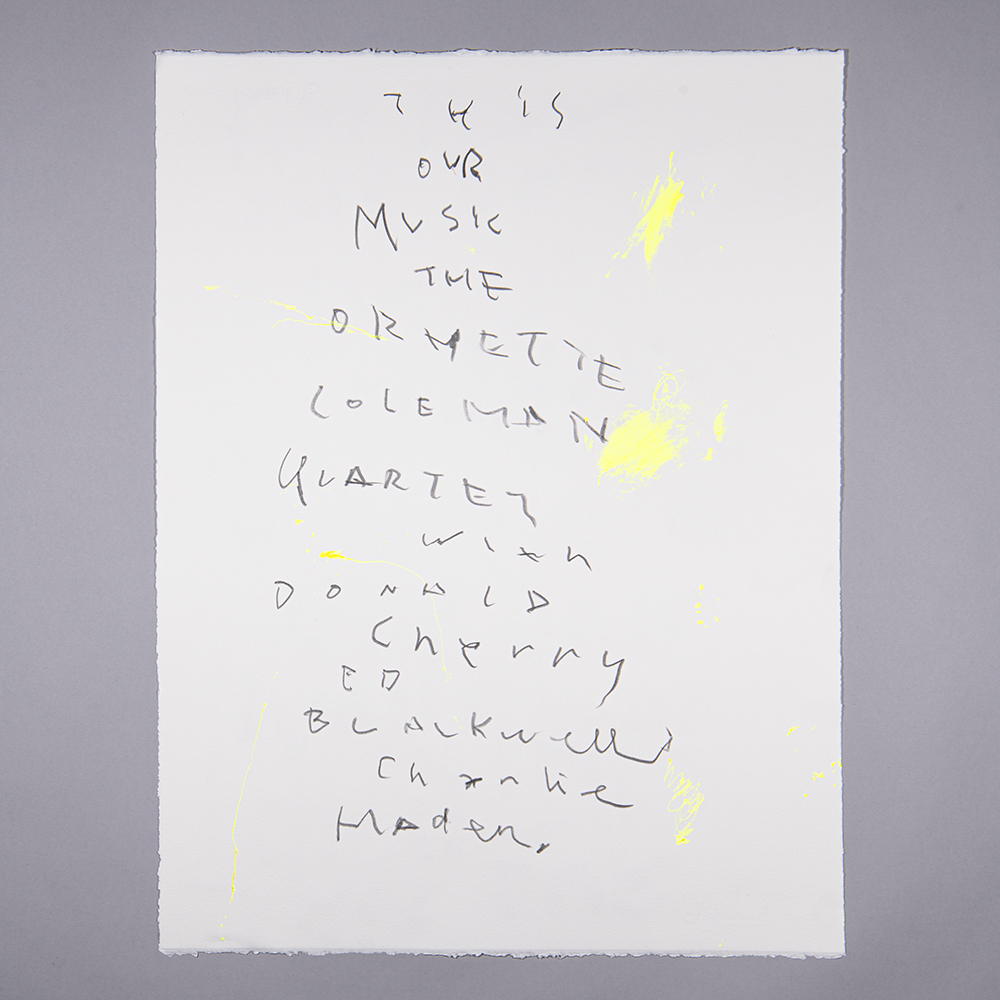 THiS
OUR
MUSIC
THE
ORNETTE
COLEMAN
QUARTET
with
DONALD
Cherry
ED
BLACKwell
Charlie
Haden.